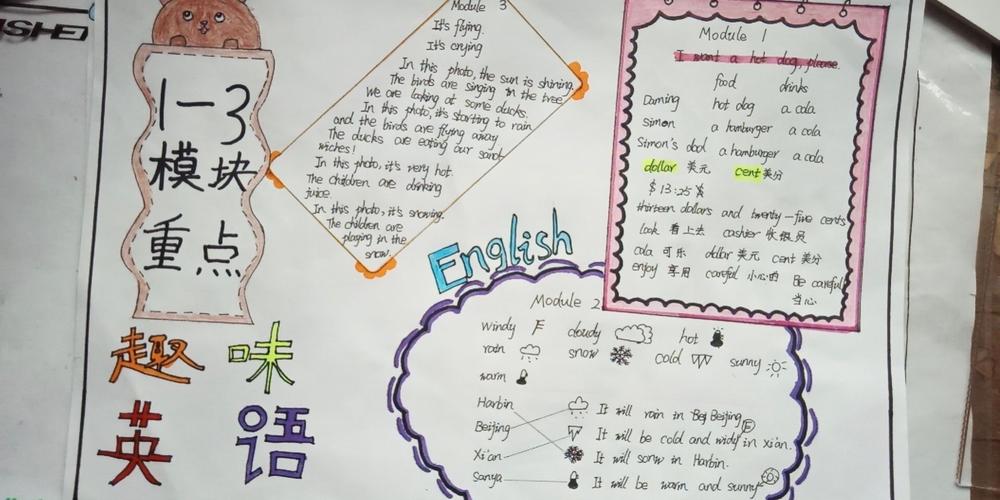 1-3
模块
重点
趣味
英语
English
Module 3
It's flying.
It's crying
In this photo, the sun is shining.
The birds are singing in the tree
We are looking at some ducks.
In this photo, it's starting to rain
and the birds are flying away
The ducks are eating our sand-
wiches!
In this photo, it's very hot.
The children are drinking
juice.
In this photo, it's snowing.
The children are
playing in the
snow.
Module 1
I want a hot dog, please.
food drinks
Daming hot dog a cola
Simon a hamburger a cola
Simon's dad a hamburger a cola
dollar 美元 cent 美分
$ 13:25
thirteen dollars and twenty-five cents
look 看上去 cashier 收银员
cola 可乐 dollar 美元 cent 美分
enjoy 享用 careful 小心的 Be careful
当心
Module 2
windy F cloudy hot
rain snow cold sunny
warm
Harbin It will rain in Bej Beijing
Beijing It will be cold and widy in Xi'an.
Xi'an It will sonw in Harbin.
Sanya It will be warm and sunny